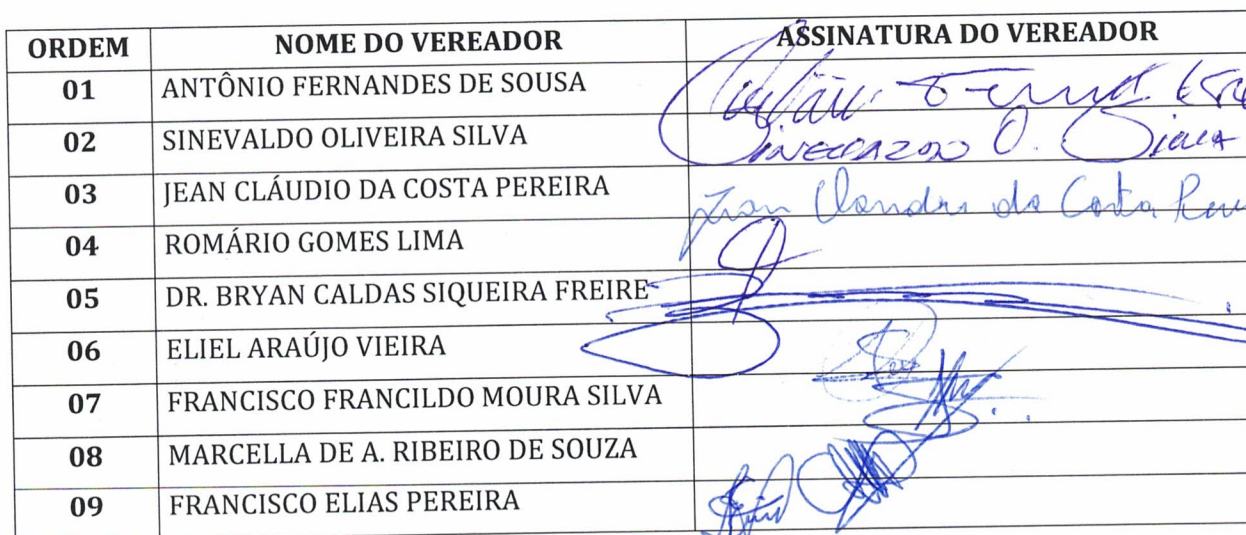 ORDEM NOME DO VEREADOR ASSINATURA DO VEREADOR
01 ANTÔNIO FERNANDES DE SOUSA
02 SINEVALDO OLIVEIRA SILVA O.
03 JEAN CLÁUDIO DA COSTA PEREIRA da Costa
04 ROMÁRIO GOMES LIMA
05 DR. BRYAN CALDAS SIQUEIRA FREIRE
06 ELIEL ARAÚJO VIEIRA
07 FRANCISCO FRANCILDO MOURA SILVA
08 MARCELLA DE A. RIBEIRO DE SOUZA
09 FRANCISCO ELIAS PEREIRA